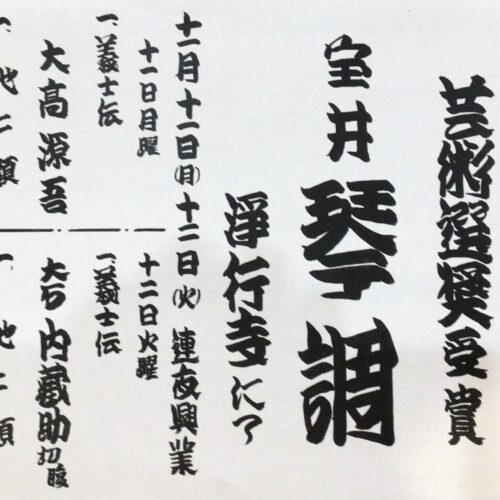 芸術選奨受賞
宝井琴調
浄行寺にて
十一月十一日㈪十二日㈫連夜興業
十一日月曜
一、義士伝
大高源吾
一、他二題
十二日火曜
一、義士伝
大石内蔵助切腹
一、他二題